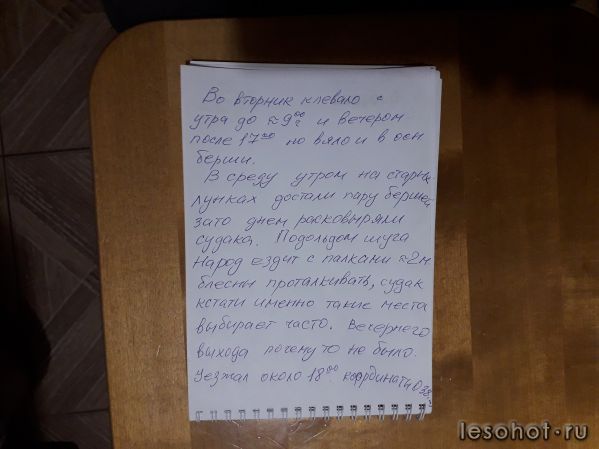 Во вторник клевало с
утра до ≈9⁰⁰ и вечером
после 17⁰⁰ но вяло и в осн
берши.
В среду утром на стары
лунках достали пару бершей
зато днем расковыряли
судака. Подольдом шуга
Народ ездит с палками ≈2м
блесны проталкивать, судак
кстати именно такие места
выбирает часто. Вечернего
выхода почему то не было.
Уезжал около 18⁰⁰. координаты
lesohot.ru